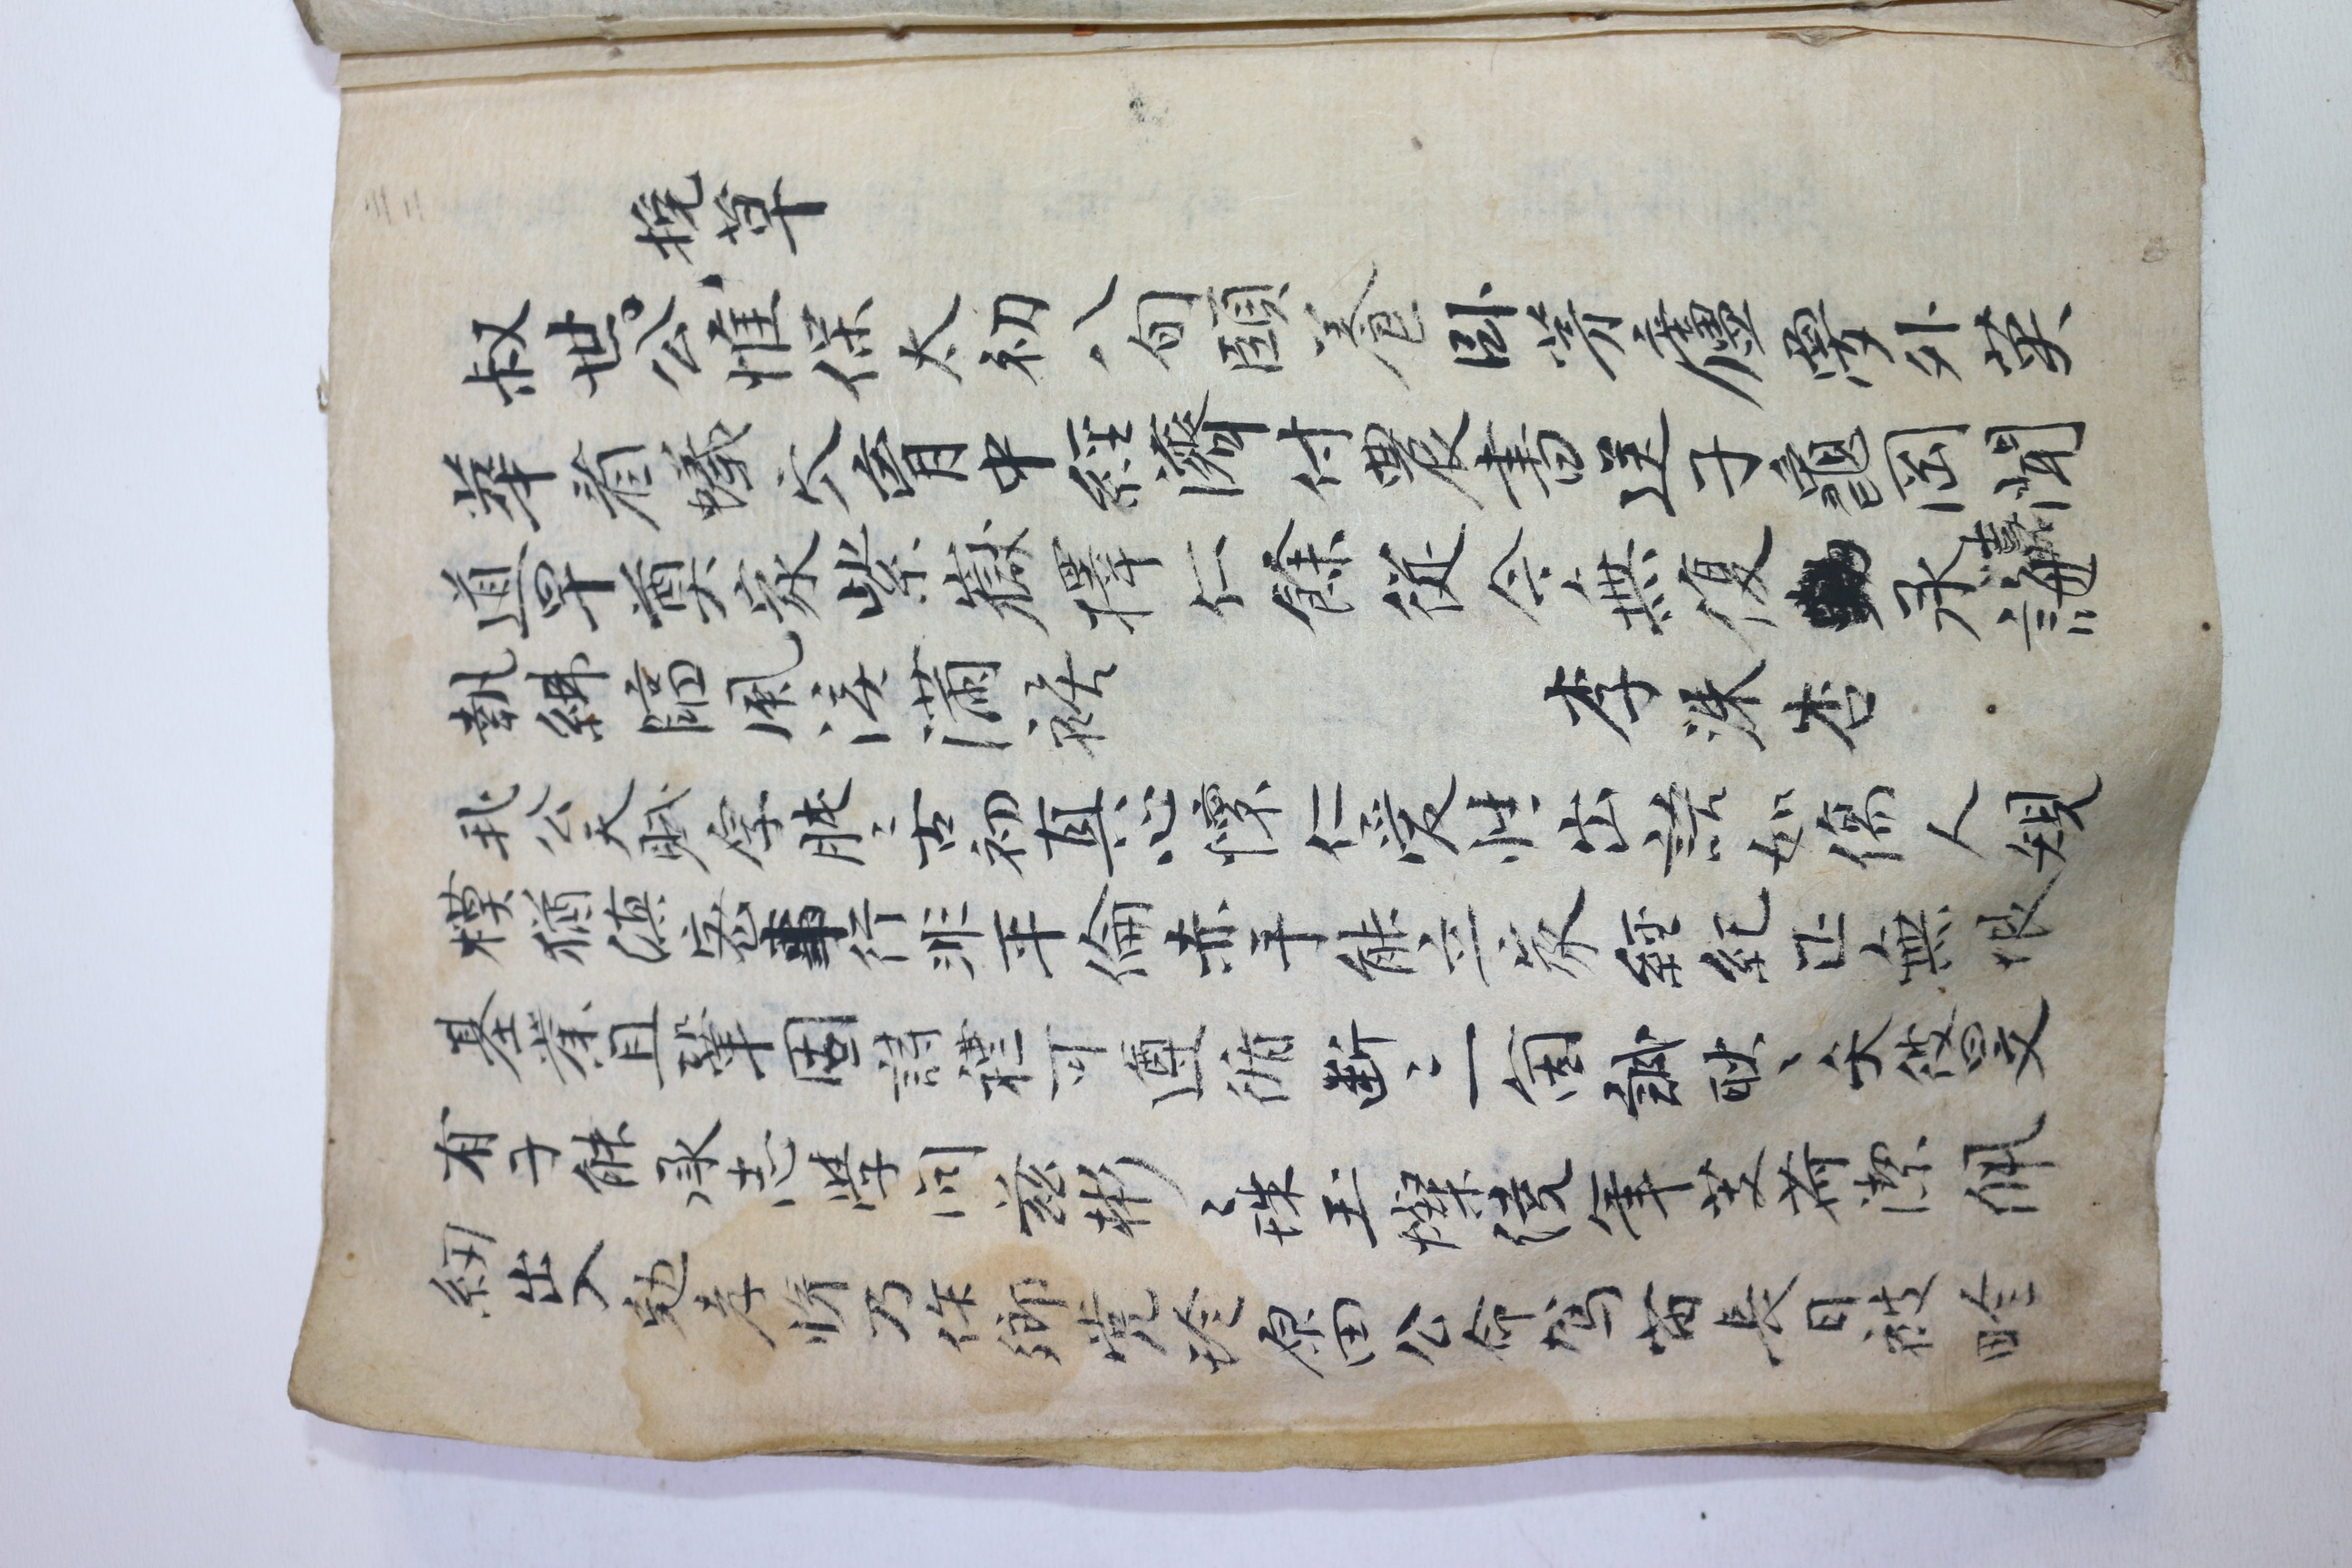 三二
挽草
叔世公惟保太初八旬頤養臥芳廬夢外英
華着蟻穴育中經濟付農書送子龜岡聞
道早奠家紫嶽擇仁餘從今無復承誨嘉
執紼臨風淚滿裾
李洙杏
我公天賦厚肫〻古初真心懷仁愛性出話如傷人規
模猶滇密事行非平倫赤手能立家經紀正無垠
基業且鞏固詩禮可遵循斷〻一箇誠耿〻矢彼旻
有子能承志學問玆彬〻珠玉燦繞筆芰荷潔佩
紉出入勉孝悌乃作鄉党珍原田公命駕苗長日被畛